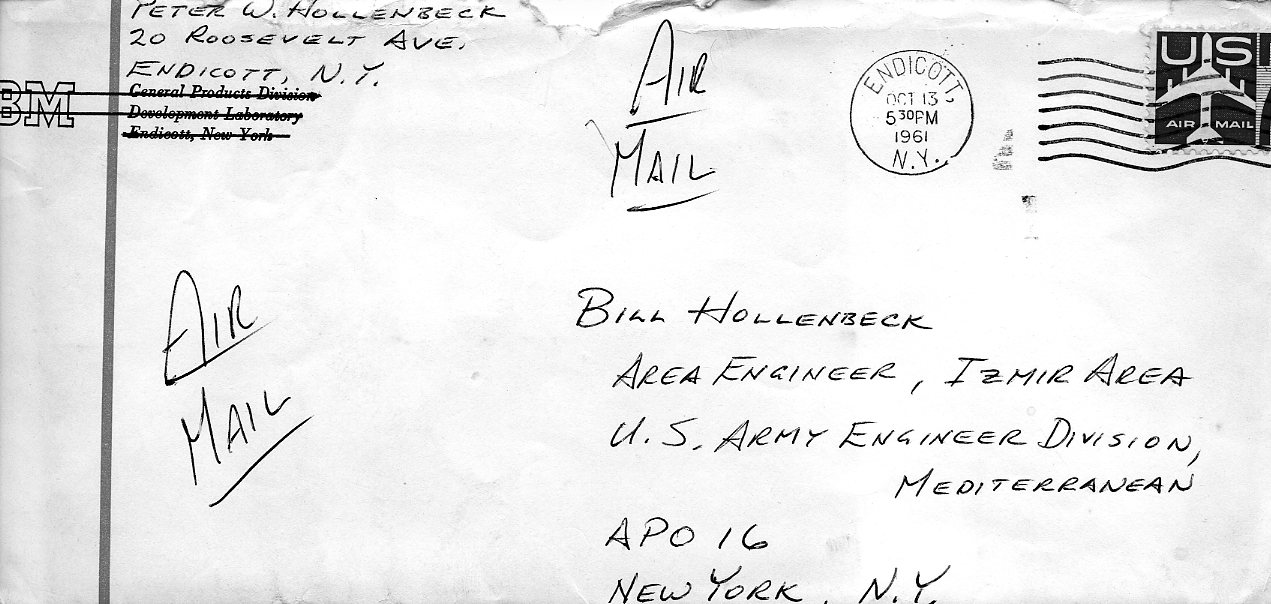 PETER W. HOLLENBECK
20 ROOSEVELT AVE.
ENDICOTT, N.Y.
BM
General Products Division
Development Laboratory
Endicott, New York
AIR
MAIL
ENDICOTT,
OCT 13
5 30 PM
1961
N.Y.
US
AIR MAIL
AIR
MAIL
BILL HOLLENBECK
AREA ENGINEER, IZMIR AREA
U.S. ARMY ENGINEER DIVISION,
MEDITERRANEAN
APO 16
NEW YORK, N.Y.